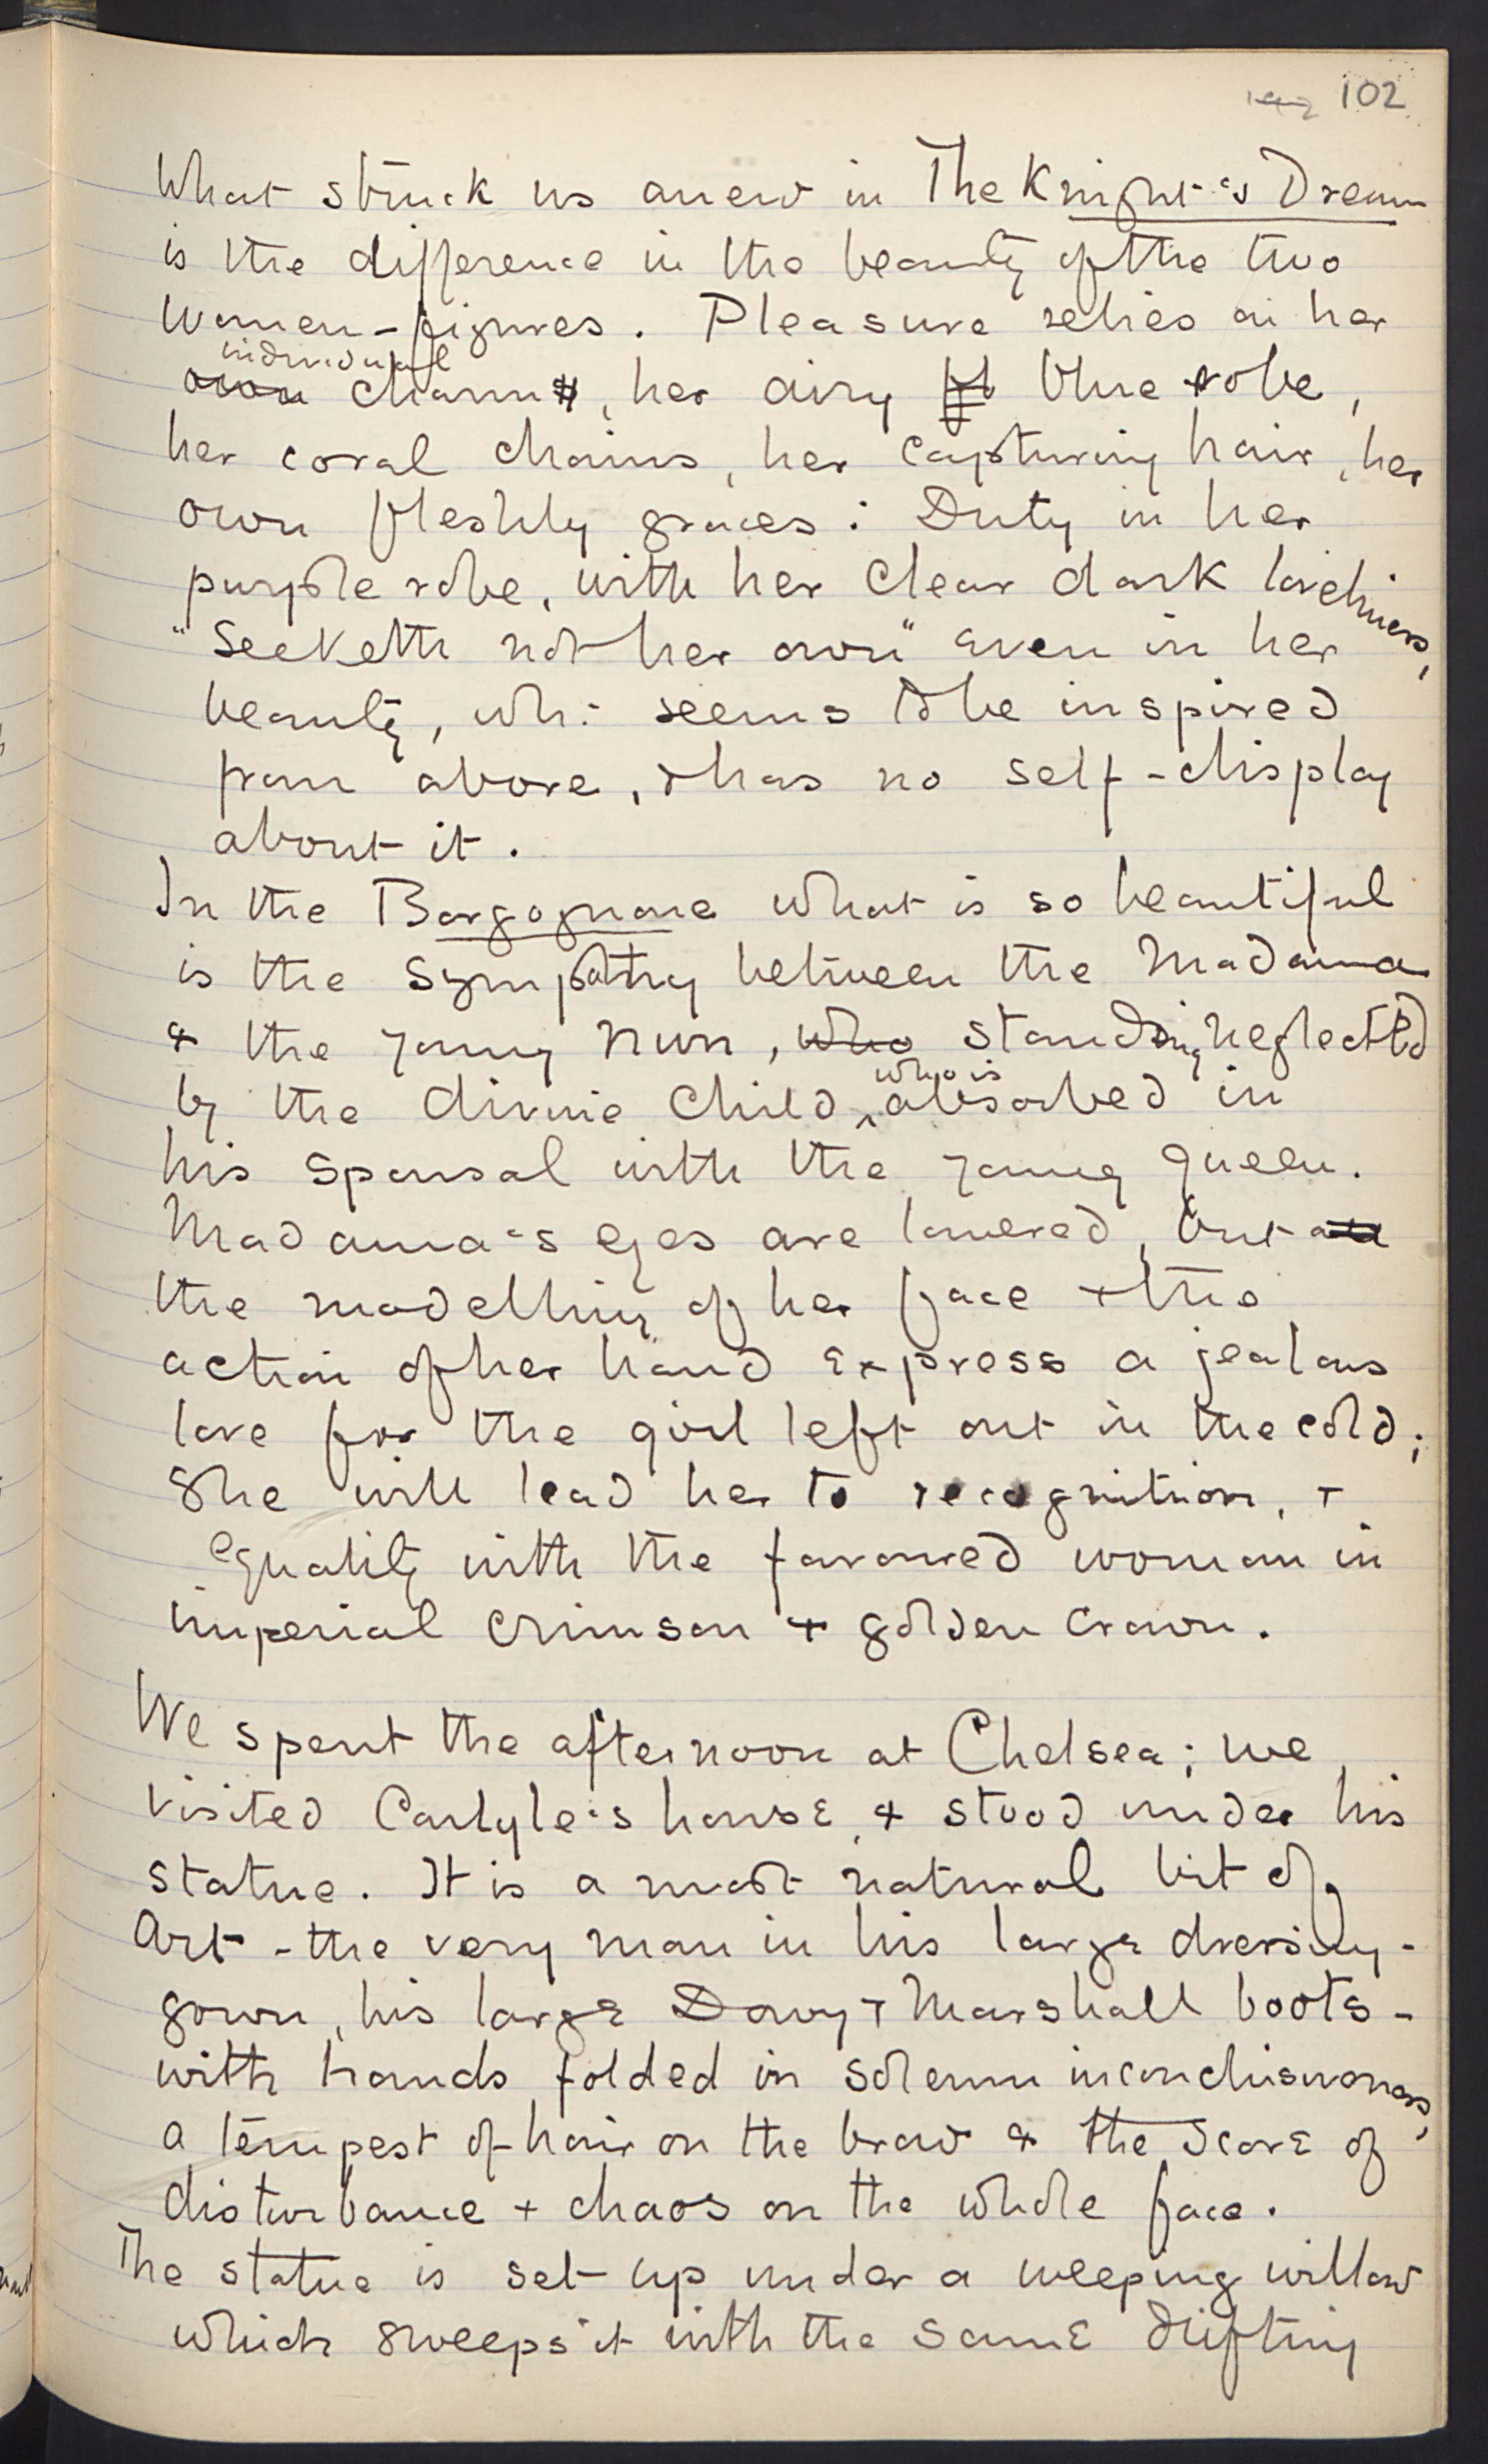 102
What struck us anew in The Knight's Dream
is the difference in the beauty of the two
women-figures. Pleasure relies on her
individual
own charm, her airy blue robe,
her coral chains, her capturing hair, her
own fleshly graces: Duty in her
purple robe, with her clear dark loveliness,
"seeketh not her own" even in her
beauty, wh: seems to be inspired
from above, & has no self-display
about it.
In the Borgognone what is so beautiful
is the sympathy between the Madama
& the young nun, who standing neglected
who is
by the divine Child ^ absorbed in
his spousal with the young queen.
Madama's eyes are lowered, but all
the modelling of her face & the
action of her hand express a jealous
love for the girl left out in the cold;
She will lead her to recognition, &
equality with the favoured woman in
imperial crimson & golden crown.
We spent the afternoon at Chelsea; we
visited Carlyle's house, & stood under his
statue. It is a most natural bit of
Art - the very man in his large dressing-
gown, his large Davy & Marshall boots -
with hands folded in solemn inconclusiveness,
a tempest of hair on the brow & the score of
disturbance & chaos on the whole face.
The statue is set up under a weeping willow
which sweeps it with the same drifting